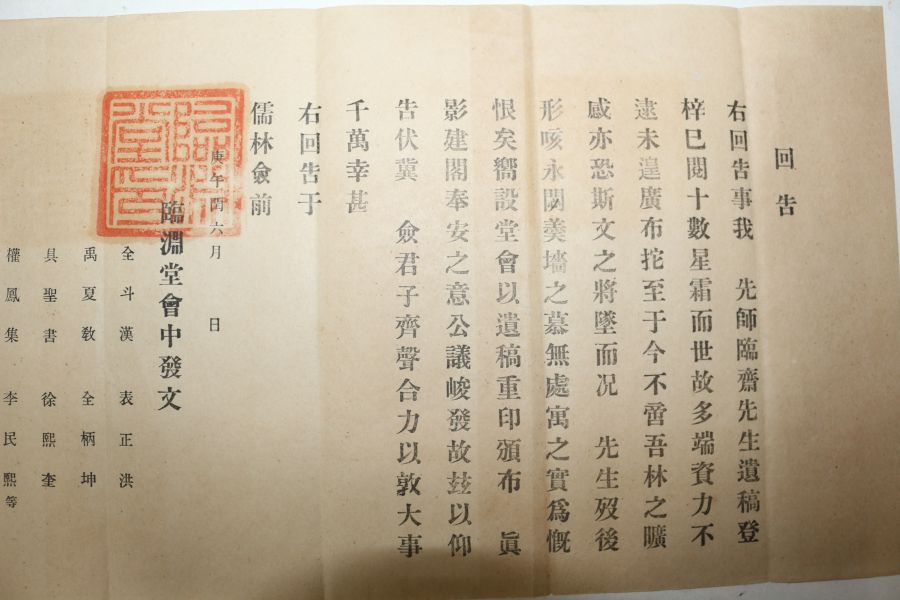 回告
右回告事我 先師臨齋先生遺稿登
梓巳閱十數星霜而世故多端資力不
逮未遑廣布拕至于今不啻吾林之曠
感亦恐斯文之將墜而况 先生歿後
形咳永閟羹墻之慕無處寓之實爲慨
恨矣嚮設堂會以遺稿重印頒布 眞
影建閣奉安之意公議峻發故玆以仰
告伏冀 僉君子齊聲合力以敦大事
千萬幸甚
右回告于
儒林僉前
庚午閏六月 日
臨淵堂會中發文
全斗漢 表正洪
禹夏敎 全柄坤
具聖書 徐熙奎
權鳳集 李民熙等